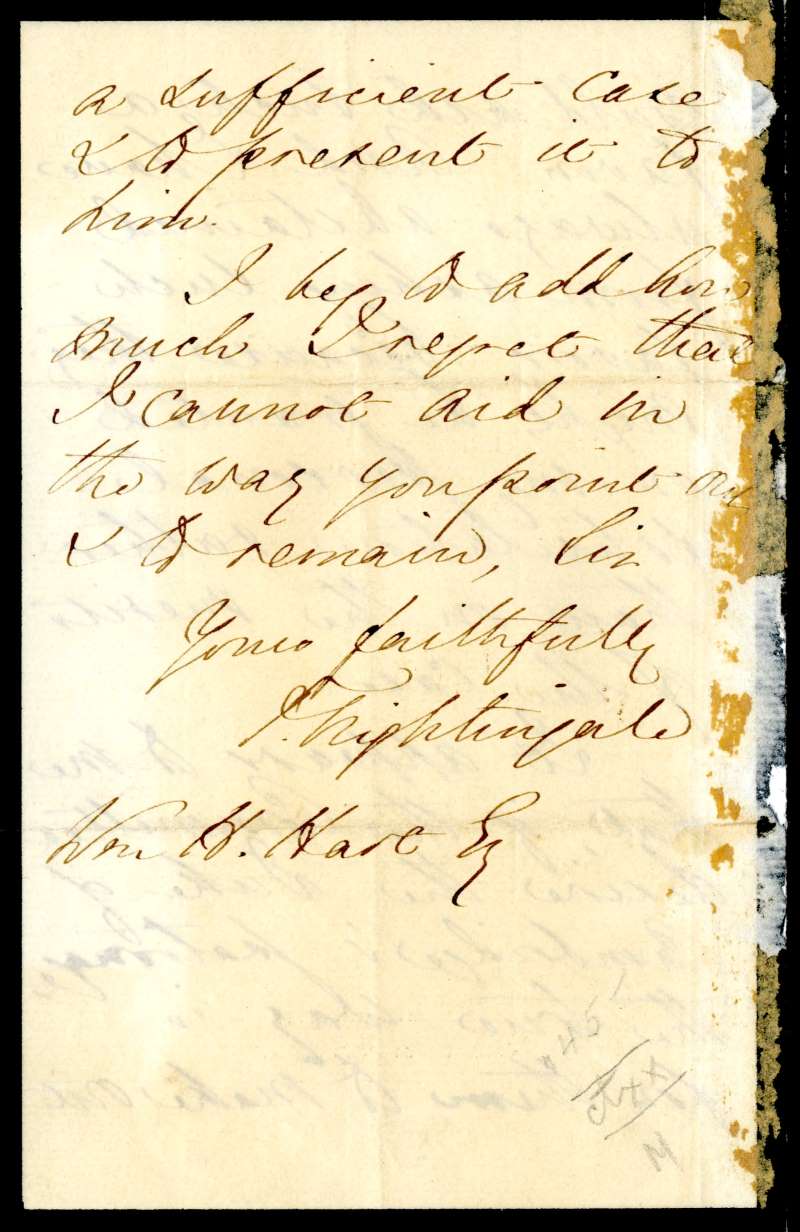 a sufficient case
& to present it to
him.
I beg to add how
much I regret that
I cannot aid in
the way you point out
& to remain, Sir
Yours faithfully
F. Nightingale
Wm H. Hart Esq